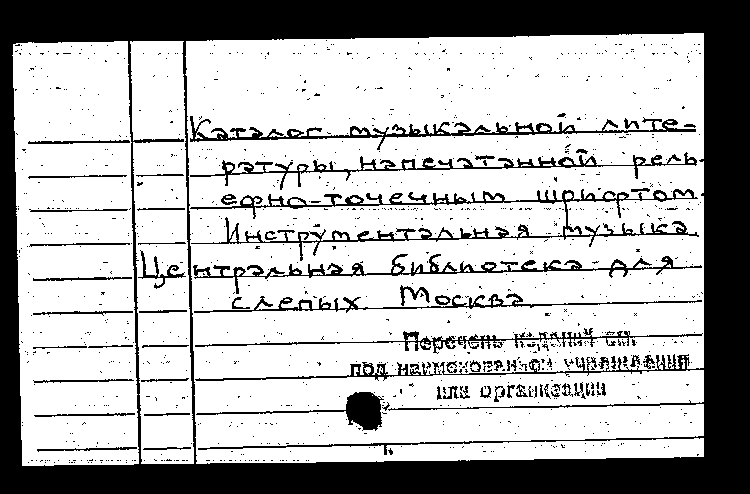 Каталог музыкальной лите-
ратуры, напечатанной рель-
ефно-точечным шрифтом.
Инструментальная музыка.
Центральная библиотека для
слепых. Москва.
Перечень изданий см.
под наименованием учреждения
или организации